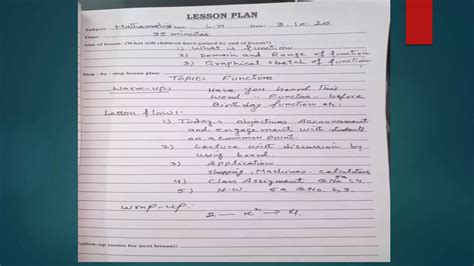 LESSON PLAN
Subject: Mathematics L-VI Date: 3-10-20
Time: 35 minutes
Aim of lesson: (What will children have gained by end of lesson?)
1) What is function
2) Domain and Range of function
3) Graphical sketch of function
Step - by - step lesson plan:
TOPIC: Function
Warm-up: Have you Heard this
Word " Function " before
Birthday function etc.
Lesson flow: 1) Today's objectives
and engagement with students
on a common point.
2) Lecture with discussion by
using board.
3) Application
Shopping, Machines, calculators
4) Class Assignment
5) H.W.
Wrap-up:
Follow-up (notes for next lesson):